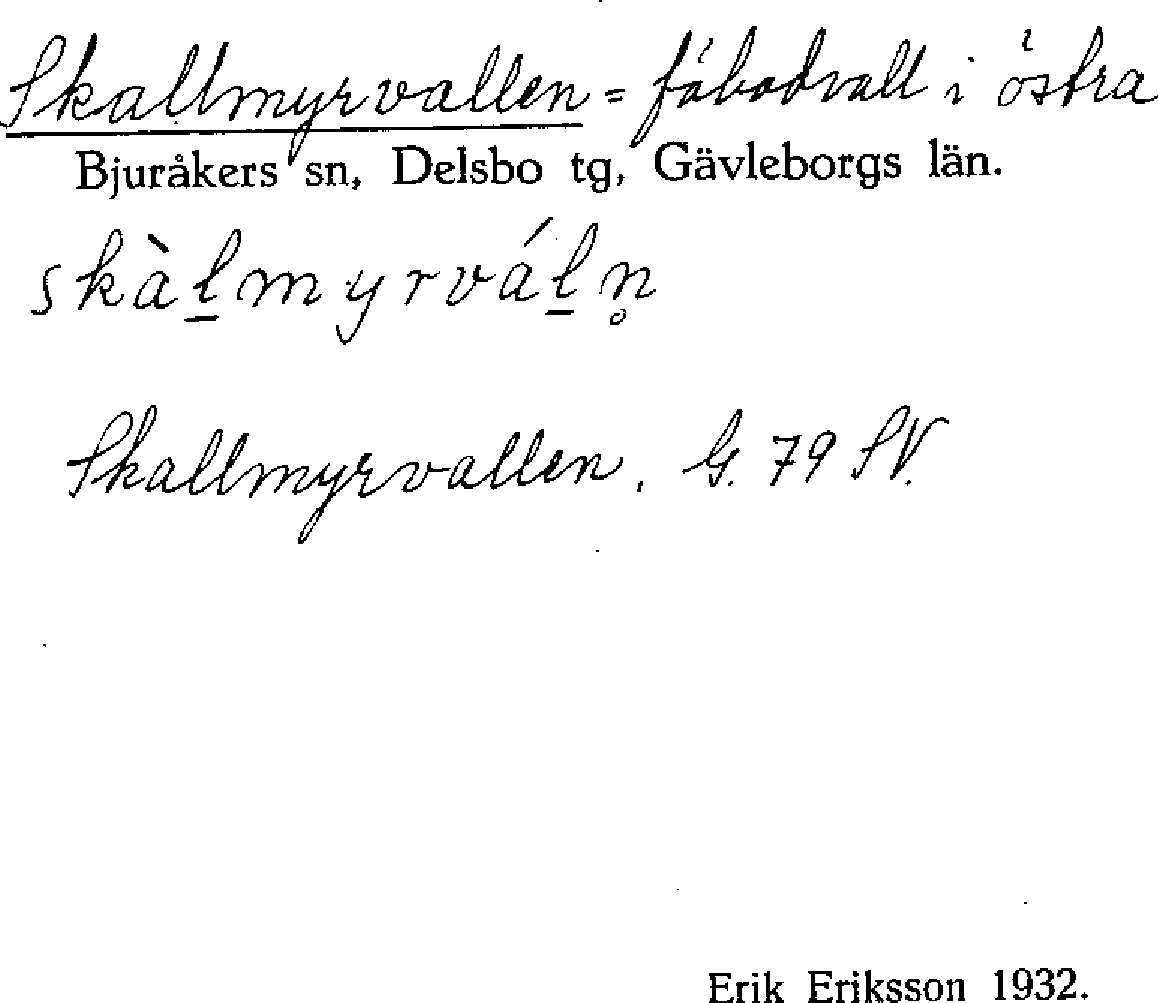 Skallmyrvallen = fäbodvall i östra
Bjuråkers sn, Delsbo tg, Gävleborgs län.
skàl̲myrvál̲n̥
Skallmyrvallen. G. 79 SV.
Erik Eriksson 1932.